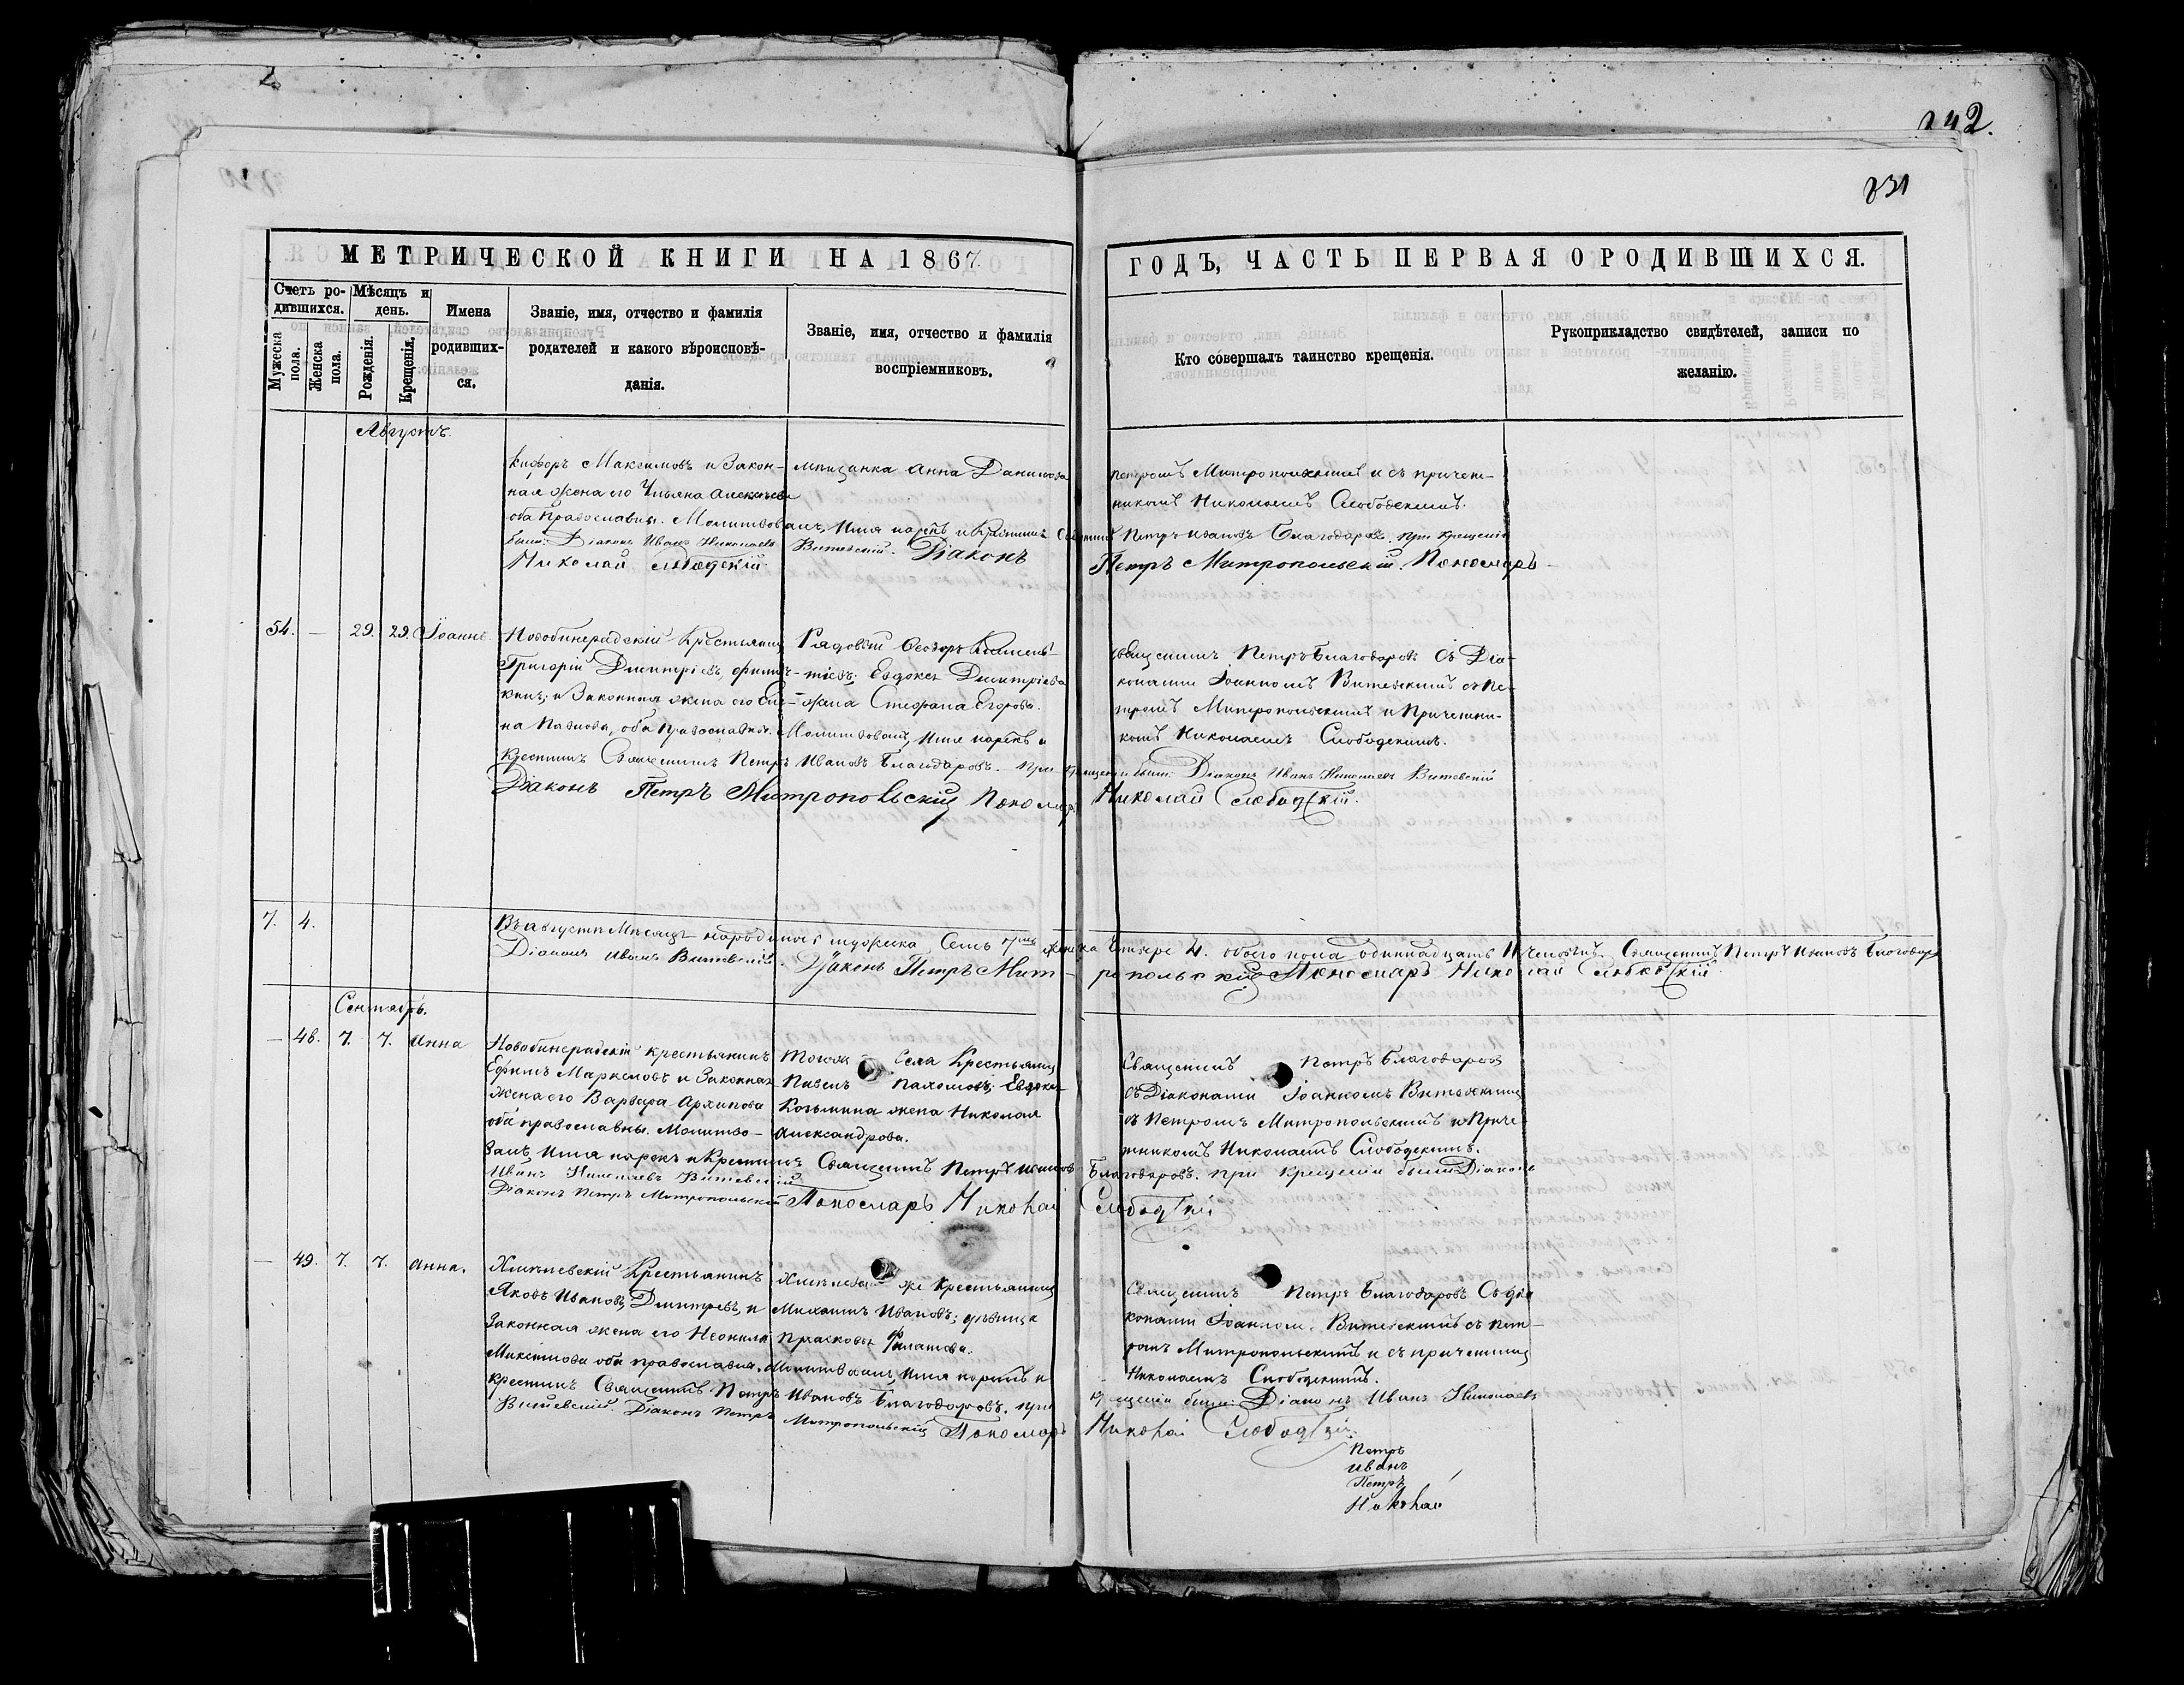 242.
231
МЕТРИЧЕСКОЙ КНИГИ НА 1867
ГОДЪ, ЧАСТЬ ПЕРВАЯ О РОДИВШИХСЯ.
Счетъ ро-
дившихся.
Мужеска пола.
Женска пола.
Мѣсяцъ и
день.
Рожденія.
Крещенія.
Имена
родивших-
ся.
Званіе, имя, отчество и фамилія
родителей и какого вѣроисповѣ-
данія.
Званіе, имя, отчество и фамилія
воспріемниковъ.
Кто совершалъ таинство крещенія.
Рукоприкладство свидѣтелей, записи по
желанію.
Августъ.
кифоръ Максимовъ и Закон-
ная жена его Ульяна Алексѣева
оба православны. Молитвовалъ, Имя нарекъ и Крестилъ
были: Діаконъ Иванъ Николаевъ
Николай Слободскій
мѣщанка Анна Данилова
Витевскій. Діаконъ
петромъ Митропольскимъ и съ причет-
никомъ Николаемъ Слободскимъ.
Петръ Ивановъ Благодаровъ. при крещеніи
Петръ Митропольскій. Пономарь
54. — 29. 29. Іоаннъ.
Новобинарадскій Крестьянинъ
Григорій Дмитріевъ,
и Законная жена его
на Павлова, оба православны. Молитвовалъ, Имя нарекъ и
крестилъ Священникъ Петръ Ивановъ Благодаровъ. При крещеніи были: Діаконъ Иванъ Николаевъ Витевскій
Діаконъ Петръ Митропольскій Пономарь Николай Слободскій.
Рядовой Ѳеодоръ
Дмитріева
жена Стефана Егорова.
Священникъ Петръ Благодаровъ Съ Діа-
конами Іоанномъ Витевскимъ съ Пе-
тромъ Митропольскимъ и Причетни-
комъ Николаемъ Слободскимъ.
7. 4.
Въ августѣ Мѣсяцѣ народилось мужеска Семь 7мь женска Четыре 4. обоего пола одиннадцать 11 человѣкъ. Священникъ Петръ Ивановъ Благодаровъ
Діаконъ Иванъ Витевскій. Діаконъ Петръ Митропольскій Пономарь Николай Слободскій
Сентябрь.
— 48. 7. 7. Анна
Новобинарадскій крестьянинъ
Ефимъ Маркеловъ и Законная
жена его Варвара Архипова
оба православны. Молитво-
валъ, Имя нарекъ и Крестилъ Священникъ Петръ Ивановъ Благодаровъ. при крещеніи были: Діаконъ
Иванъ Николаевъ Витевскій
Діаконъ Петръ Митропольскій Пономарь Николай Слободскій
Тогож Села Крестьянинъ
Павелъ Пахомовъ; Евдокі-
Козьмина жена Николая
Александрова.
Священникъ Петръ Благодаровъ
съ Діаконами Іоанномъ Витевскимъ
съ Петромъ Митропольскимъ и Приче-
тникомъ Николаемъ Слободскимъ.
— 49. 7. 7. Анна.
Хмѣлевскій Крестьянинъ
Яковъ Ивановъ Дмитревъ, и
Законная жена его Неонила
оба православны. Молитвовалъ, Имя нарекъ и
крестилъ Священникъ Петръ Ивановъ Благодаровъ. При крещеніи были: Діаконъ Иванъ Николаевъ
Витевскій. Діаконъ Петръ Митропольскій Пономарь Николай Слободскій.
Хмѣлевскій же Крестьянинъ
Михаилъ Ивановъ; дѣвица
Прасковья Филатова.
Священникъ Петръ Благодаровъ Съ Діа-
конами Іоанномъ Витевскимъ съ Пет-
ромъ Митропольскимъ и съ причетникомъ
Николаемъ Слободскимъ.
Петръ
Иванъ
Петръ
Николай